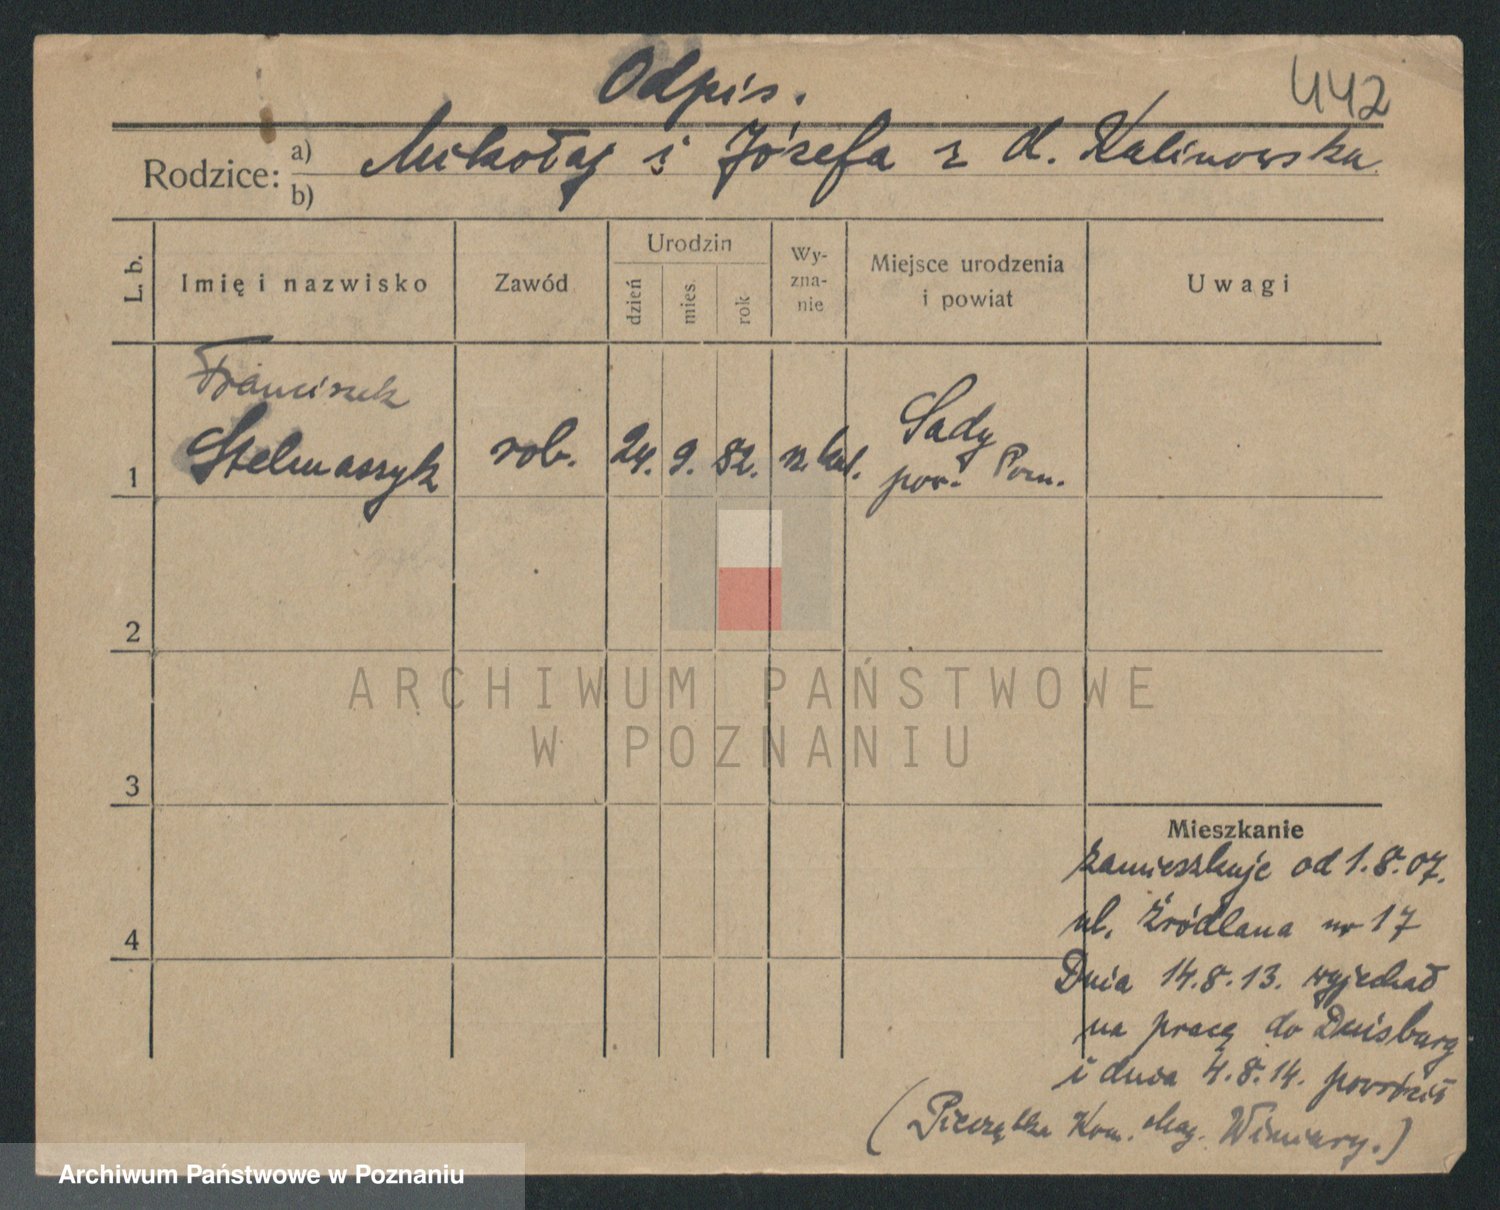 Odpis.
442
Rodzice: a) Mikołaj i Józefa z d. Kalinowska
b)
L. b.
Imię i nazwisko
Zawód
Urodzin
dzień
mies
rok
Wy-
zna-
nie
Miejsce urodzenia
i powiat
Uwagi
Franciszek
Stelmaszyk
rob.
24.
9.
82.
rz. kat.
Sady
pow. Pozn.
1
2
3
4
Mieszkanie
zamieszkuje od 1.8.07.
ul. Źródlana nr 17
Dnia 14.8.13. wyjechał
na pracę do Duisburg
i dnia 4.8.14. powrócił
(Pieczątka Kom. Mag. Winiary.)
ARCHIWUM PAŃSTWOWE
W POZNANIU
Archiwum Państwowe w Poznaniu